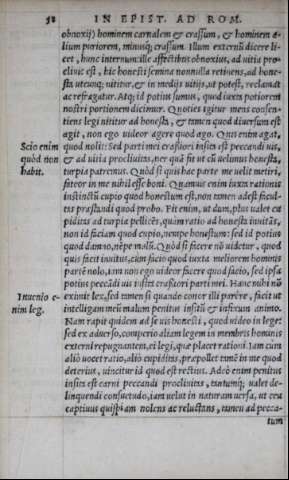 58 IN EPIST. AD ROM.
obnoxij) hominem carnalem & crassum, & hominem a-
lium puriorem, minusq; crassum. Illum externũ dicere li-
cet, hunc internum: ille affectibus obnoxius, ad uitia pro-
cliuis est, hic honesti semina nonnulla retinens, ad hone-
sta utcunq; nititur, & in medijs uitijs, ut potest, reclamat
ac refragatur. Atq; id potius sumus, quod iuxta potiorem
nostri portionem dicimur. Quoties igitur mens consen-
tiens legi nititur ad honesta, & tamen quod diuersum est
agit, non ego uideor agere quod ago. Quis enim agat,
Scio enim quod nolit: Sed parti mei crassiori insita est peccandi uis,
quòd non & ad uitia procliuitas, per quã fit ut cũ uelimus honesta,
habit. turpia patremus. Quòd si quis hac parte me uelit metiri,
fateor in me nihil esse boni. Quamuis enim iuxta rationis
instinctũ cupio quod honestum est, non tamen adest facul-
tas præstandi quod probo. Fit enim, ut dum plus ualet cu
piditas ad turpia pelliceẽs, quàm ratio ad honesta inuitãs,
non id faciam quod cupio, nempe honestum: sed id potius
quod damno, nẽpe malũ. Quòd si facere nõ uidetur, quod
quis facit inuitus, cum facio quod iuxta meliorem hominis
partẽ nolo, iam non ego uideor facere quod facio, sed ipsa
potius peccãdi uis insita crassiori parti mei. Hanc nubi nõ
Inuenio e- eximit lex, sed tamen si quando conor illi parẽre, facit ut
nim leg. intelligam meũ malum penitus insitũ & infixum animo.
Nam rapit quidem ad se uis honesti, quod uideo in lege:
sed ex aduerso, comperio aliam legem in membris hominis
externi repugnantem, ei legi, quæ placet rationi. Iam cum
aliò uocet ratio, aliò cupiditas, præpollet tamẽ in me quod
deterius, uincitur id quod est rectius. Adeò enim penitus
insitus est carni peccandi procliuitas, tantumq; ualet de-
linquendi consuetudo, iam uelut in naturam uersa, ut ceu
captiuus quispiam nolens ac reluctans, tamen ad pecca-
tum